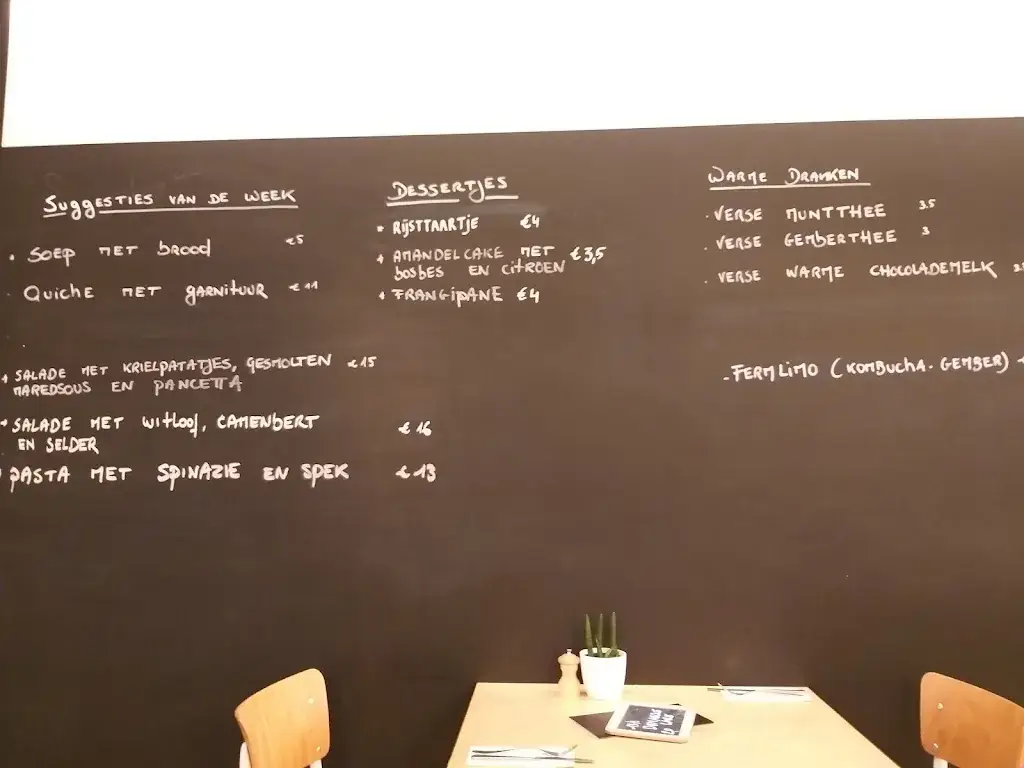 SUGGESTIES VAN DE WEEK
• SOEP MET brood €5
• QUICHE MET GARNITUUR €11
• SALADE MET KRIELPATATJES, GESMOLTEN €15
MAREDSOUS EN PANCETTA
• SALADE MET WITLOOF, CAMENBERT
EN SELDER €16
• PASTA MET SPINAZIE EN SPEK €13
DESSERTJES
• RIJSTTAARTJE €4
• AMANDELCAKE MET €3,5
bosbes EN CITROEN
• FRANGIPANE €4
WARME DRANKEN
• VERSE MUNTTHEE 3.5
• VERSE GEMBERTHEE 3
• VERSE WARME CHOCOLADEMELK
- FERMLIMO (KOMBUCHA - GEMBER)